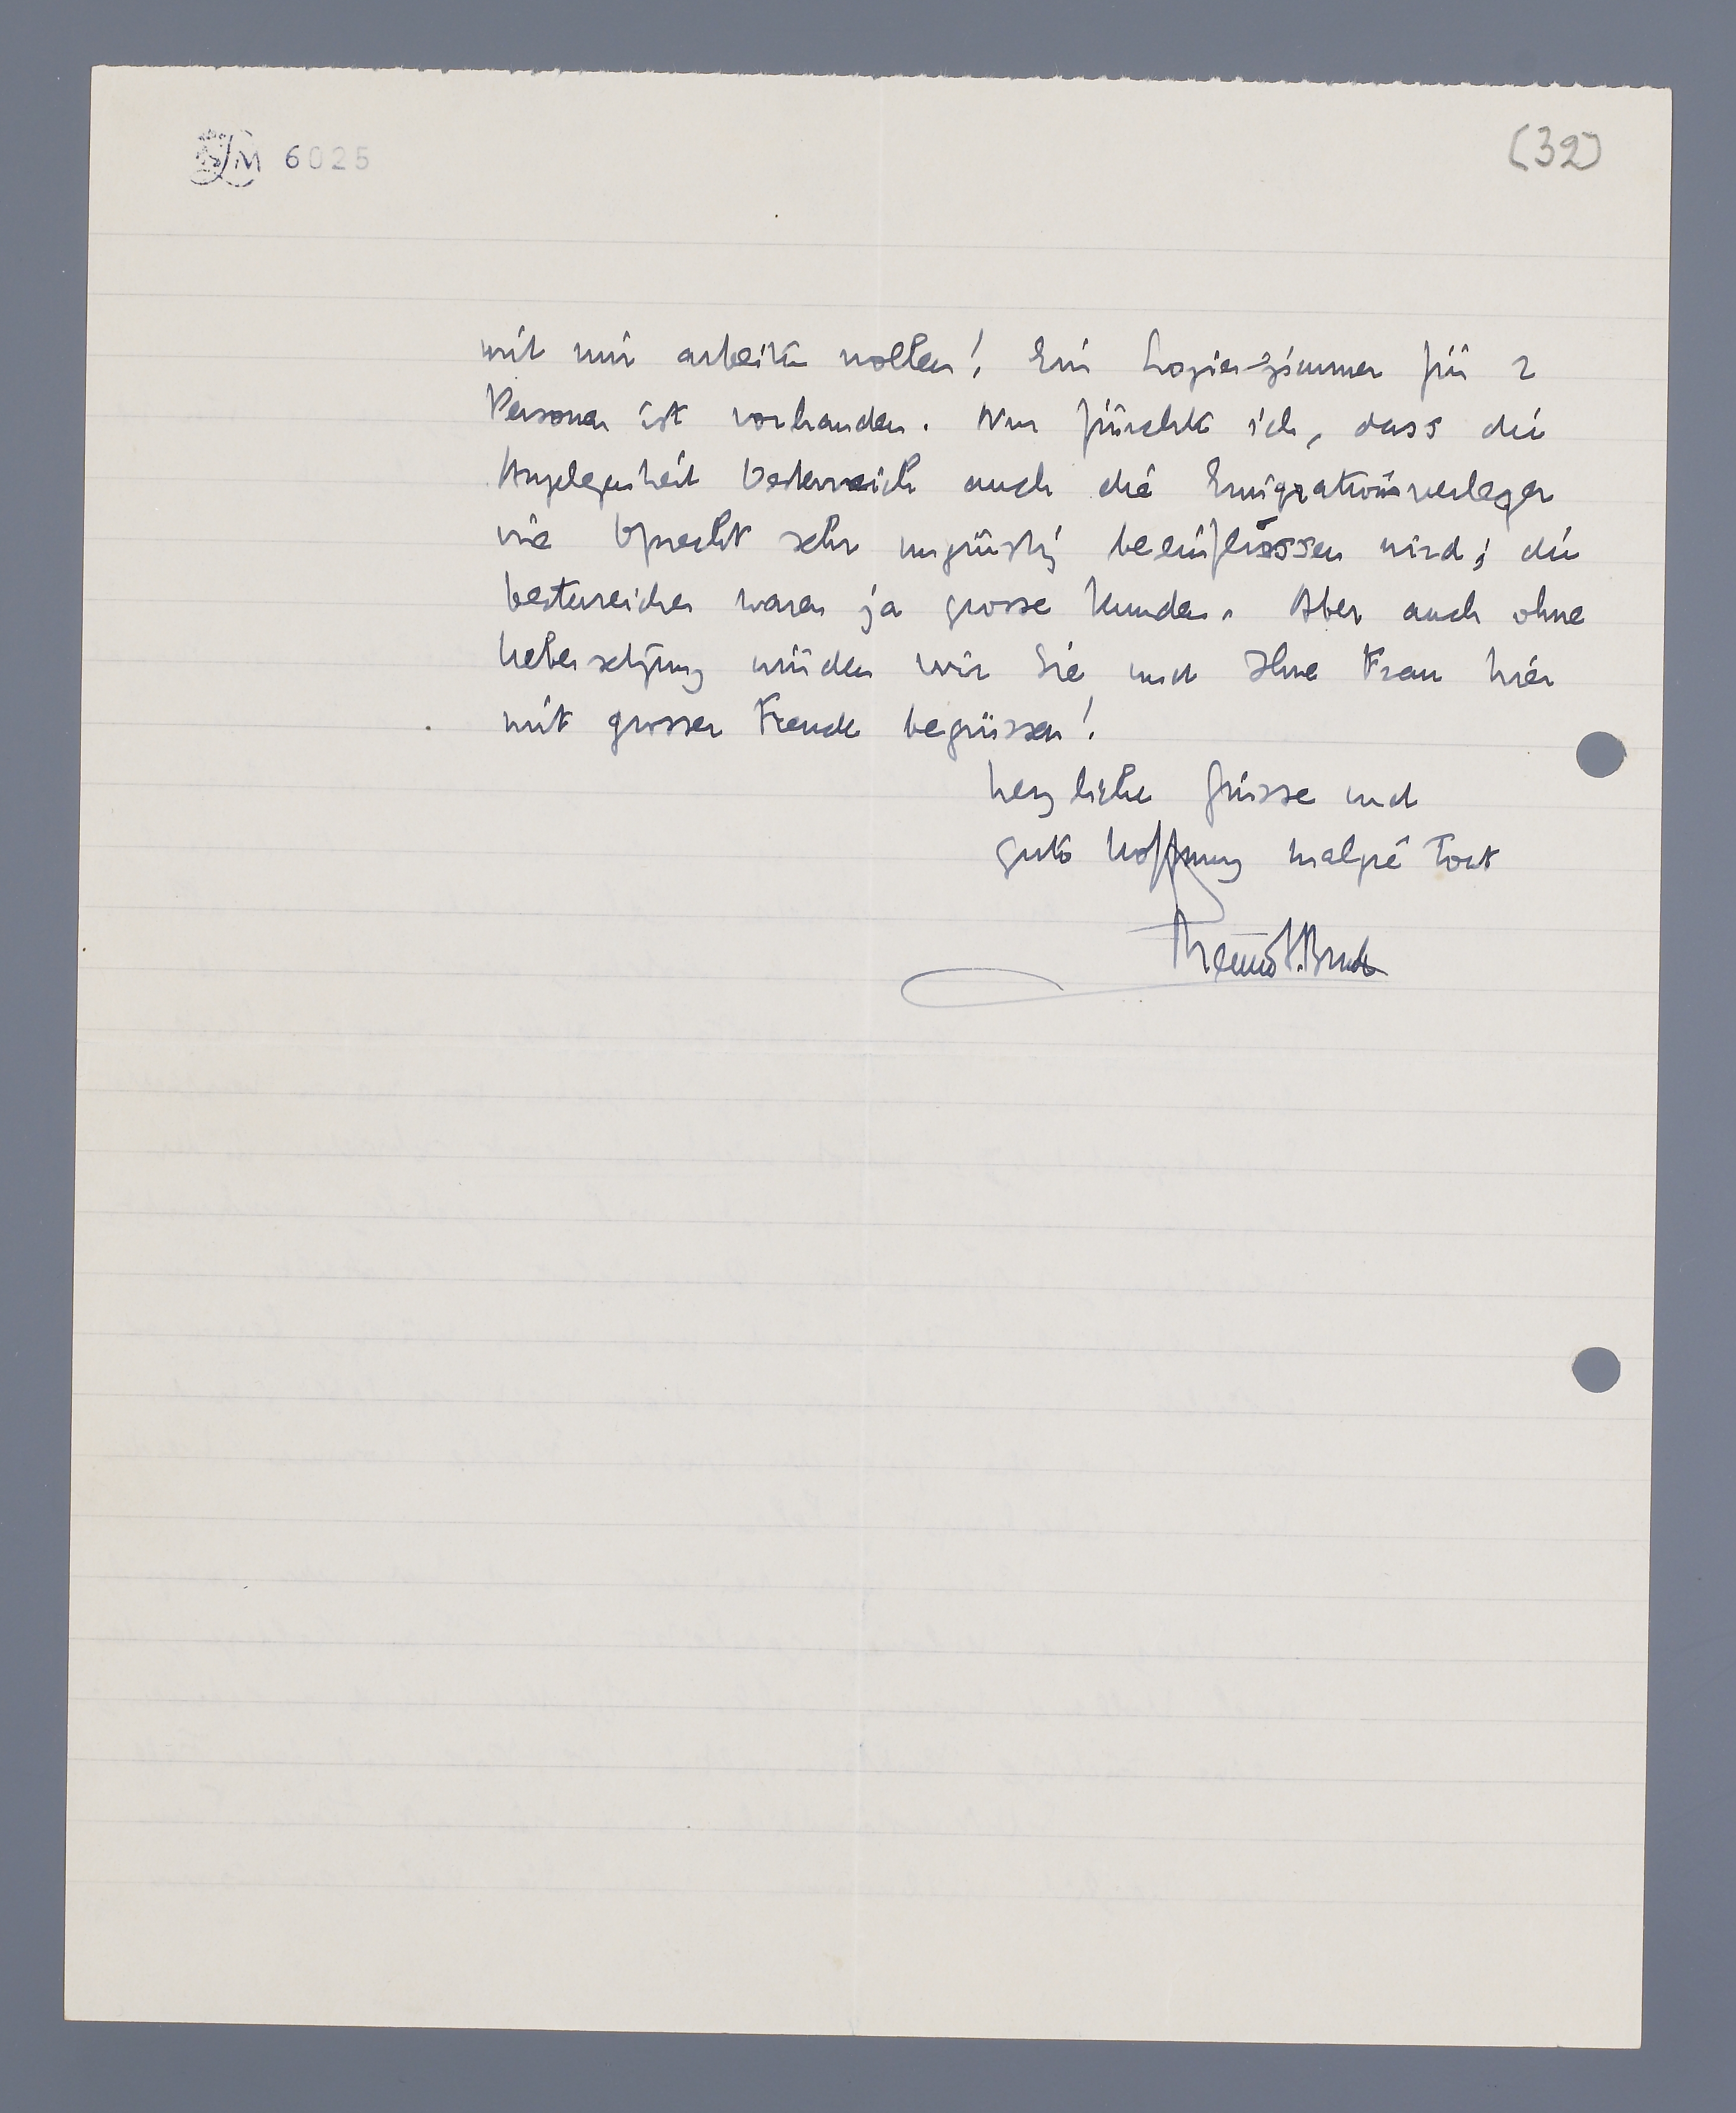 6025
(32)
mit mir arbeiten wollen! Ein Logier-zimmer für 2
Personen ist vorhanden. Nur fürchte ich, dass die
Angelegenheit Oesterreich auch die Emigrationsverleger
wie Oprecht sehr ungünstig beeinflussen wird; die
Oesterreicher waren ja grosse Kunden. Aber auch ohne
Uebersetzung würden wir Sie und Ihre Frau hier
mit grosser Freude begrüssen!
herzliche Grüsse und
gute Hoffnung malgré tout
Menno t. Braak